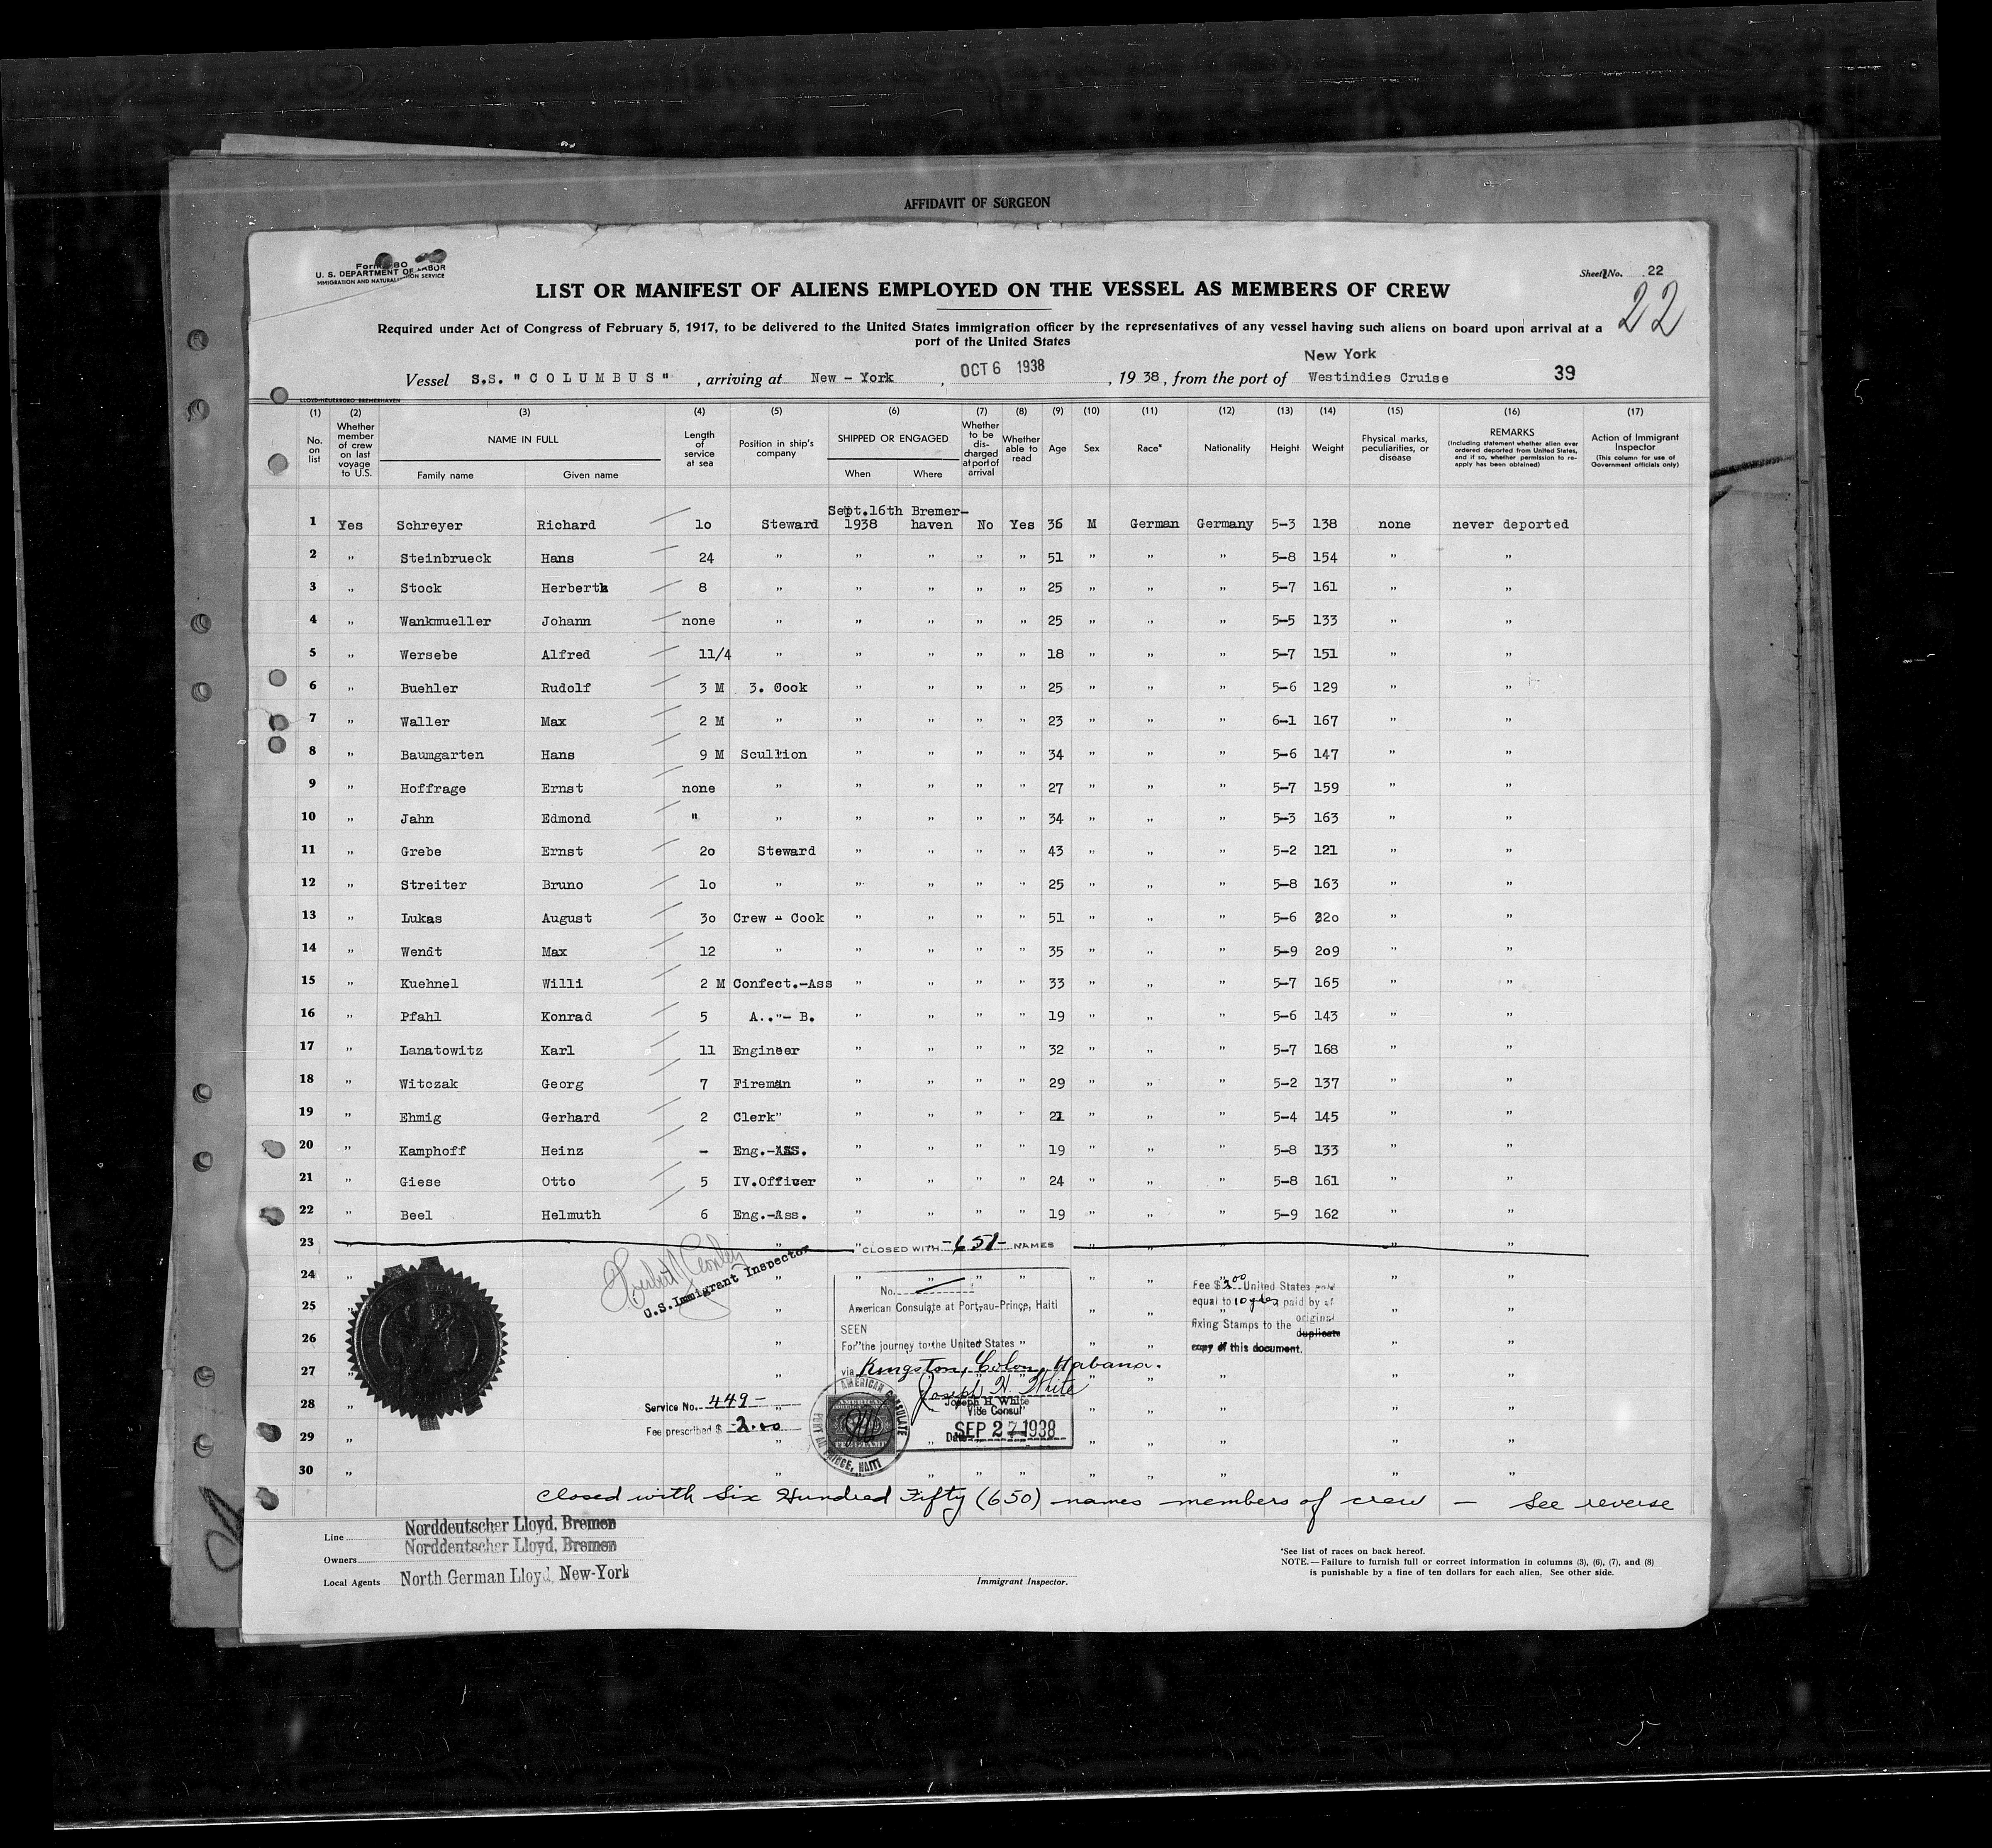 AFFIDAVIT OF SURGEON
U. S. DEPARTMENT OF LABOR
IMMIGRATION AND NATURALIZATION SERVICE
Sheet No. 22
22
LIST OR MANIFEST OF ALIENS EMPLOYED ON THE VESSEL AS MEMBERS OF CREW
Required under Act of Congress of February 5, 1917, to be delivered to the United States immigration officer by the representatives of any vessel having such aliens on board upon arrival at a
port of the United States
New York
Vessel S.S. "COLUMBUS" , arriving at New - York , OCT 6 1938 , 19 38, from the port of Westindies Cruise 39
(1) (2) (3) (4) (5) (6) (7) (8) (9) (10) (11) (12) (13) (14) (15) (16) (17)
No. on list
Whether member of crew on last voyage to U.S.
NAME IN FULL
Family name Given name
Length of service at sea
Position in ship's company
SHIPPED OR ENGAGED
When Where
Whether to be discharged at port of arrival
Whether able to read
Age
Sex
Race*
Nationality
Height
Weight
Physical marks, peculiarities, or disease
REMARKS
(Including statement whether alien ever ordered deported from United States, and if so, whether permission to reapply has been obtained)
Action of Immigrant Inspector
(This column for use of Government officials only)
1 Yes Schreyer Richard 1o Steward Sept.16th 1938 Bremer-haven No Yes 36 M German Germany 5-3 138 none never deported
2 " Steinbrueck Hans 24 " " " " " 51 " " " 5-8 154 " "
3 " Stock Herbert 8 " " " " " 25 " " " 5-7 161 " "
4 " Wankmueller Johann none " " " " " 25 " " " 5-5 133 " "
5 " Wersebe Alfred 11/4 " " " " " 18 " " " 5-7 151 " "
6 " Buehler Rudolf 3 M 3. Cook " " " " 25 " " " 5-6 129 " "
7 " Waller Max 2 M " " " " " 23 " " " 6-1 167 " "
8 " Baumgarten Hans 9 M Scullion " " " " 34 " " " 5-6 147 " "
9 " Hoffrage Ernst none " " " " " 27 " " " 5-7 159 " "
10 " Jahn Edmond " " " " " " 34 " " " 5-3 163 " "
11 " Grebe Ernst 2o Steward " " " " 43 " " " 5-2 121 " "
12 " Streiter Bruno 1o " " " " " 25 " " " 5-8 163 " "
13 " Lukas August 3o Crew - Cook " " " " 51 " " " 5-6 22o " "
14 " Wendt Max 12 " " " " " 35 " " " 5-9 2o9 " "
15 " Kuehnel Willi 2 M Confect.-Ass " " " " 33 " " " 5-7 165 " "
16 " Pfahl Konrad 5 A.."- B. " " " " 19 " " " 5-6 143 " "
17 " Lanatowitz Karl 11 Engineer " " " " 32 " " " 5-7 168 " "
18 " Witczak Georg 7 Fireman " " " " 29 " " " 5-2 137 " "
19 " Ehmig Gerhard 2 Clerk" " " " " 21 " " " 5-4 145 " "
20 " Kamphoff Heinz - Eng.-ASS. " " " " 19 " " " 5-8 133 " "
21 " Giese Otto 5 IV.Officer " " " " 24 " " " 5-8 161 " "
22 " Beel Helmuth 6 Eng.-Ass. " " " " 19 " " " 5-9 162 " "
23 " " " CLOSED WITH -651- NAMES " " " "
24
25
26
27
28
29
30
U.S. Immigrant Inspector
No.
American Consulate at Port-au-Prince, Haiti
SEEN
For the journey to the United States
via Kingston, Colon, Habana.
Joseph H. White
Joseph H. White
Vice Consul
Date SEP 27 1938
AMERICAN CONSULATE
PORT AU PRINCE, HAITI
AMERICAN
FEE STAMP
Service No. 449-
Fee prescribed $ 2.00
Fee $2.00 United States gold
equal to 10 gdes, paid by af
fixing Stamps to the original
duplicate
copy of this document.
Closed with Six Hundred Fifty (650) names members of crew - See reverse
Line Norddeutscher Lloyd, Bremen
Owners Norddeutscher Lloyd, Bremen
Local Agents North German Lloyd, New-York
Immigrant Inspector.
*See list of races on back hereof.
NOTE.—Failure to furnish full or correct information in columns (3), (6), (7), and (8)
is punishable by a fine of ten dollars for each alien. See other side.